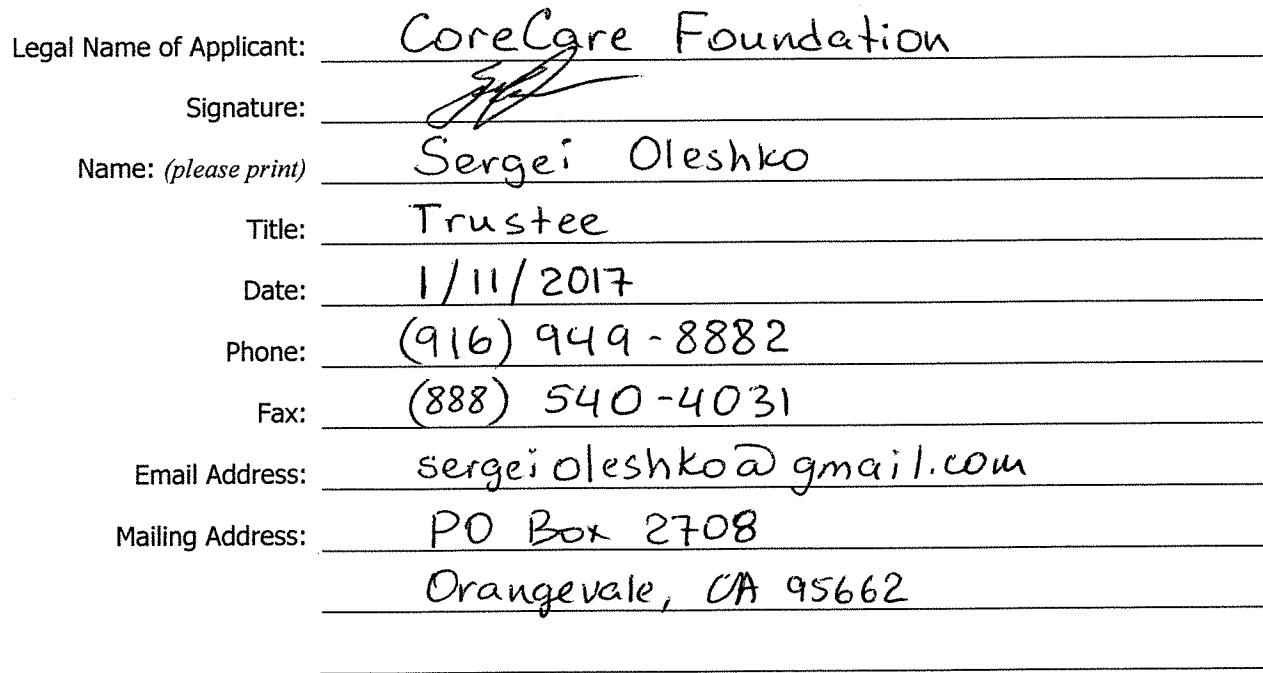 Legal Name of Applicant: CoreCare Foundation
Signature:
Name: (please print) Sergei Oleshko
Title: Trustee
Date: 1/11/2017
Phone: (916) 949-8882
Fax: (888) 540-4031
Email Address: sergeioleshko@gmail.com
Mailing Address: PO Box 2708
Orangevale, CA 95662